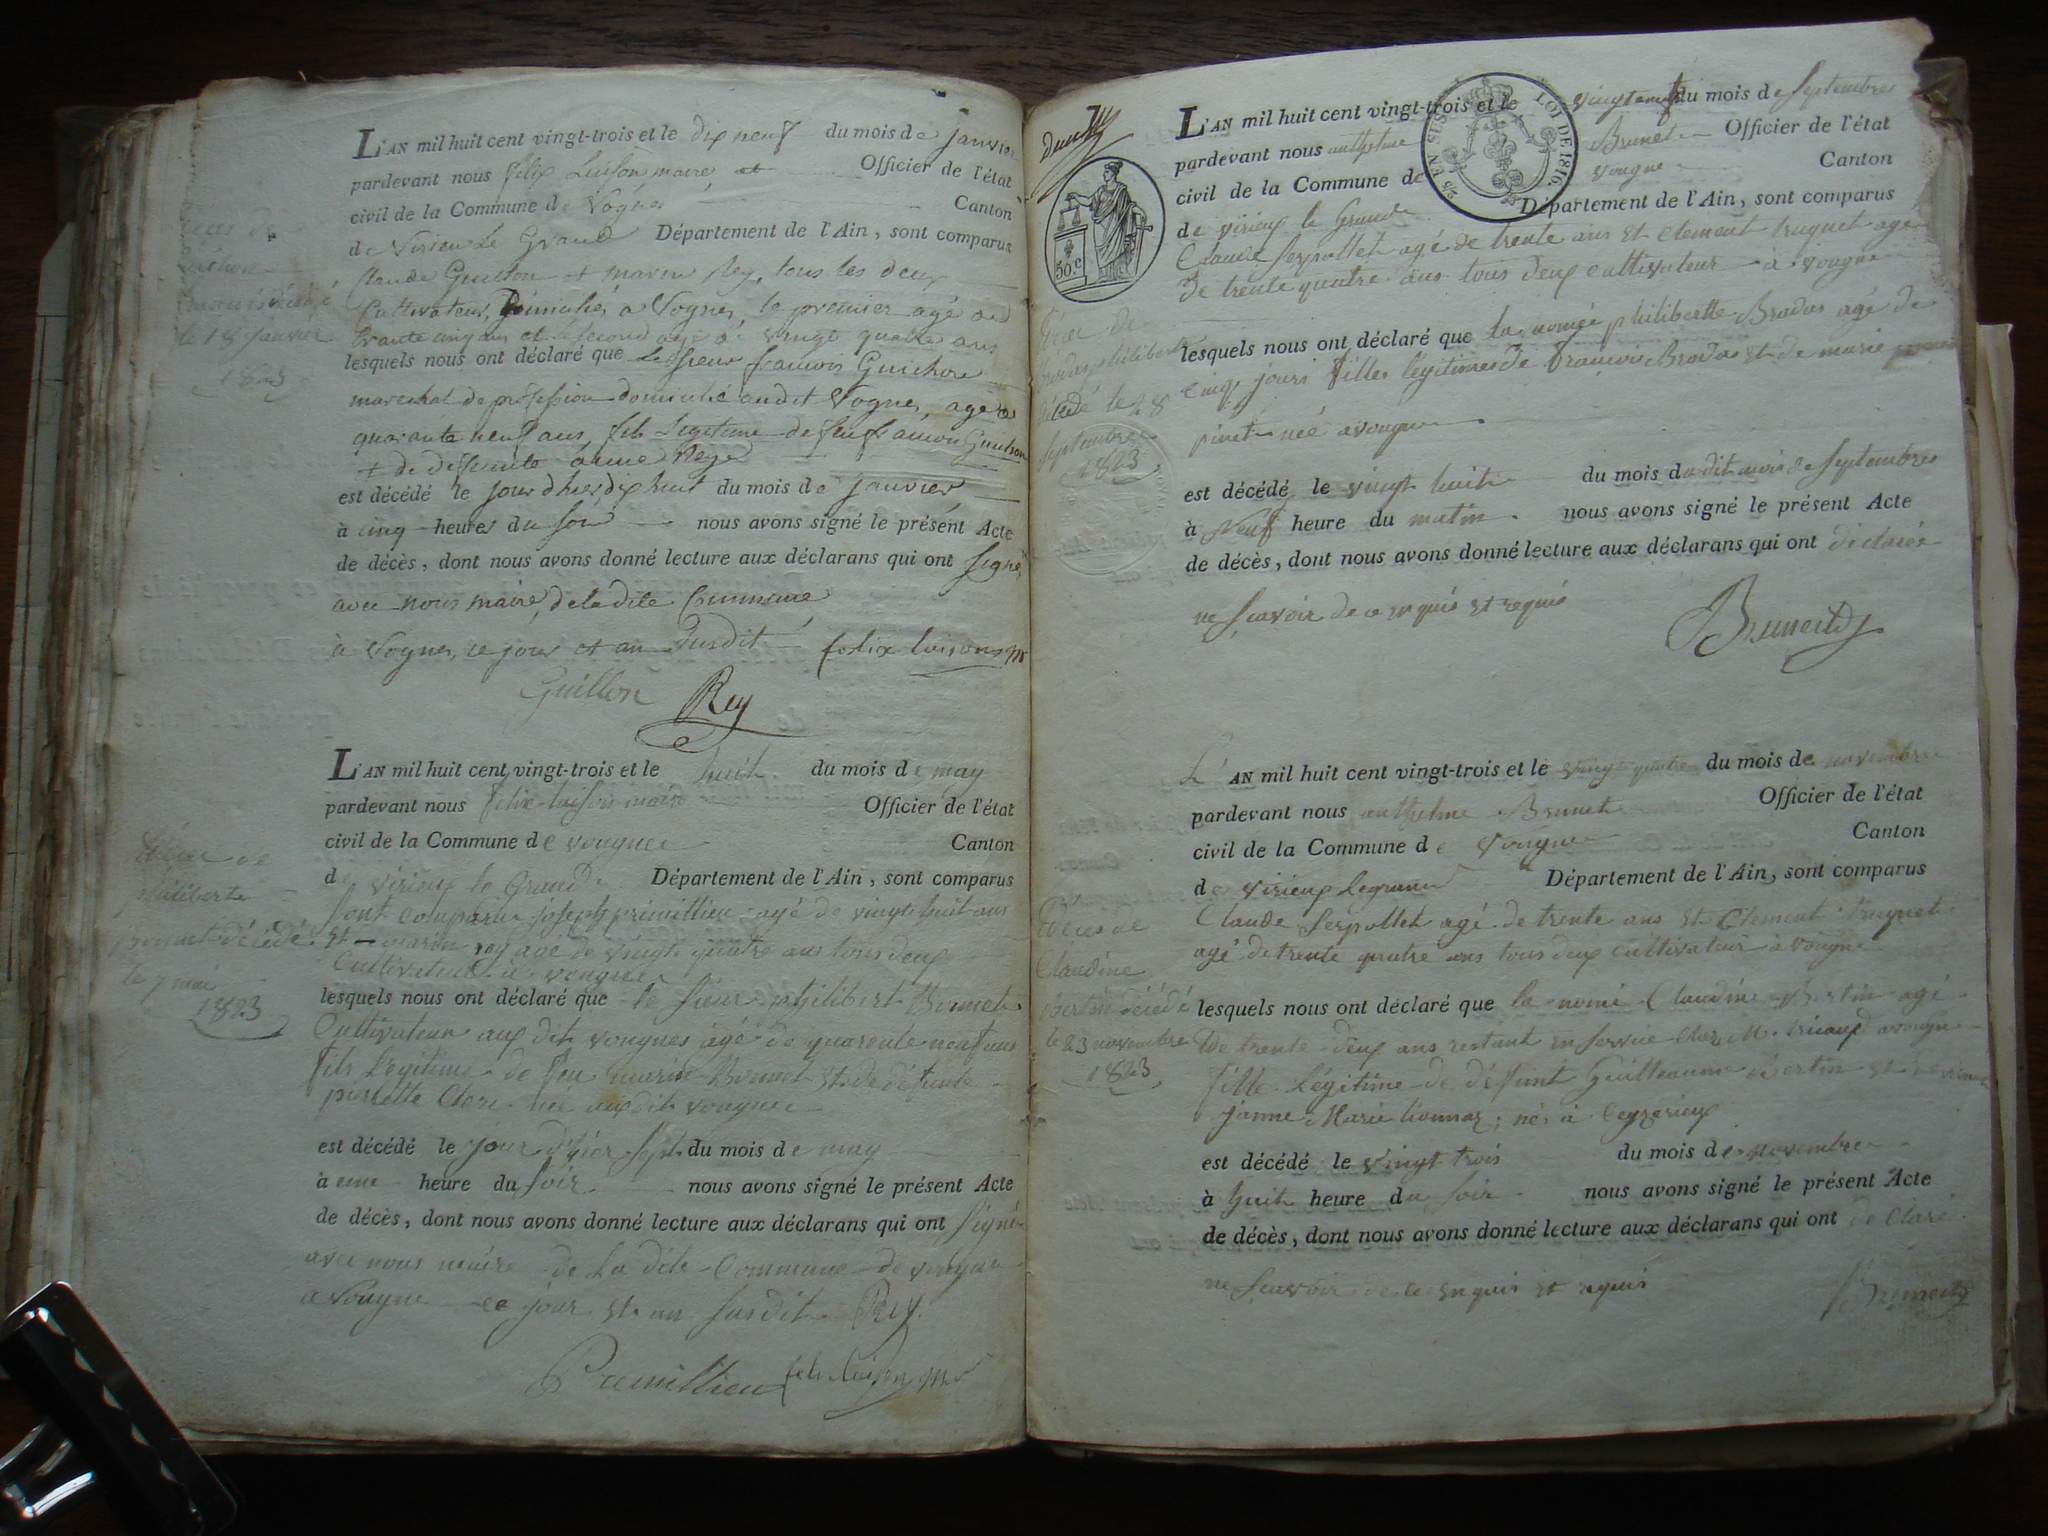 L'AN mil huit cent vingt-trois et le dix neuf du mois de janvier
pardevant nous felix Luison maire Officier de l'état
civil de la Commune de Vognes Canton
de Virieu Le Grand Département de l'Ain, sont comparus
Claude Guillon et marin Rey, tous les deux
Cultivateurs, à Vognes, le premier agé de
cinq ans et le second agé de vingt quatre ans
lesquels nous ont déclaré que Le sieur francois Guichon
marechal de profession domicilié audit Vognes, agé de
quarante neuf ans, fils Legitime de feu francois Guichon
et de deffunte anne Rey
est décédé le jour d'hier dix huit du mois de janvier
à cinq heures du soir nous avons signé le présent Acte
de décès, dont nous avons donné lecture aux déclarans qui ont signé
avec nous maire, de la dite Commune
à Vognes, ce jour et an susdit felix luison m
Guillon Rey
le 18 janvier
L'AN mil huit cent vingt-trois et le huit du mois de may
pardevant nous felix luison maire Officier de l'état
civil de la Commune de vougnes Canton
de virieux le Grand Département de l'Ain, sont comparus
sont comparu joseph primillieu agé de vingt huit ans
et marin rey agé de vingt quatre ans tous deux
Cultivateur a vougnes
lesquels nous ont déclaré que le sieur philibert Bonnet
Cultivateur aux dit vougnes agé de quarente neuf ans
fils Legitime de feu marin Bonnet et de defunte
pierrette Clerc née aux dit vougnes
est décédé le jour d'hier sept du mois de may
à une heure du soir nous avons signé le présent Acte
de décès, dont nous avons donné lecture aux déclarans qui ont signé
avec nous maire de la dite Commune de vougne
a vougne ce jour et an susdit Rey
Premillieu
Décès de
philiberte
bonnet décédé
le 7 mai
1823
EN SUS LOI DE 1816.
50.c
L'AN mil huit cent vingt-trois et le vingt neuf du mois de Septembres
pardevant nous anthelme Brunet Officier de l'état
civil de la Commune de vougne Canton
de virieux le Grand Département de l'Ain, sont comparus
Claude Serpollet agé de trente ans et Clement truquet agé
de trente quatre ans tous deux cultivateur a vougne
lesquels nous ont déclaré que la nomée philibertte Brodas agé de
cinq jours filles legitimes de francois Brodas et de marie
pinet née a vougne
est décédé le vingt huit du mois du dit mois de Septembres
à Neuf heure du matin nous avons signé le présent Acte
de décès, dont nous avons donné lecture aux déclarans qui ont déclarée
ne scavoir de ce enquis et requis
Brunet
philiberte
décédé le 28
septembres
1823
L'AN mil huit cent vingt-trois et le vingt quatre du mois de novembre
pardevant nous anthelme Brunet Officier de l'état
civil de la Commune de Vougne Canton
de virieux legrand Département de l'Ain, sont comparus
Claude Serpollet agé de trente ans et Clement truquet
agé de trente quatre ans tous deux cultivateur à vougne
lesquels nous ont déclaré que la nomé Claudine Bertin agé
de trente deux ans restant en service chez M. tricaud a vougne
fille Légitime de défunt Guilleaume Bertin et de
janne Marie lionnaz; né à Ceyzerieux
est décédé le vingt trois du mois de novembre
à huit heure du soir nous avons signé le présent Acte
de décès, dont nous avons donné lecture aux déclarans qui ont déclaré
ne scavoir de ce enquis et requis Brunet
Décès de
Claudine
bertin décédé
le 23 novembre
1823